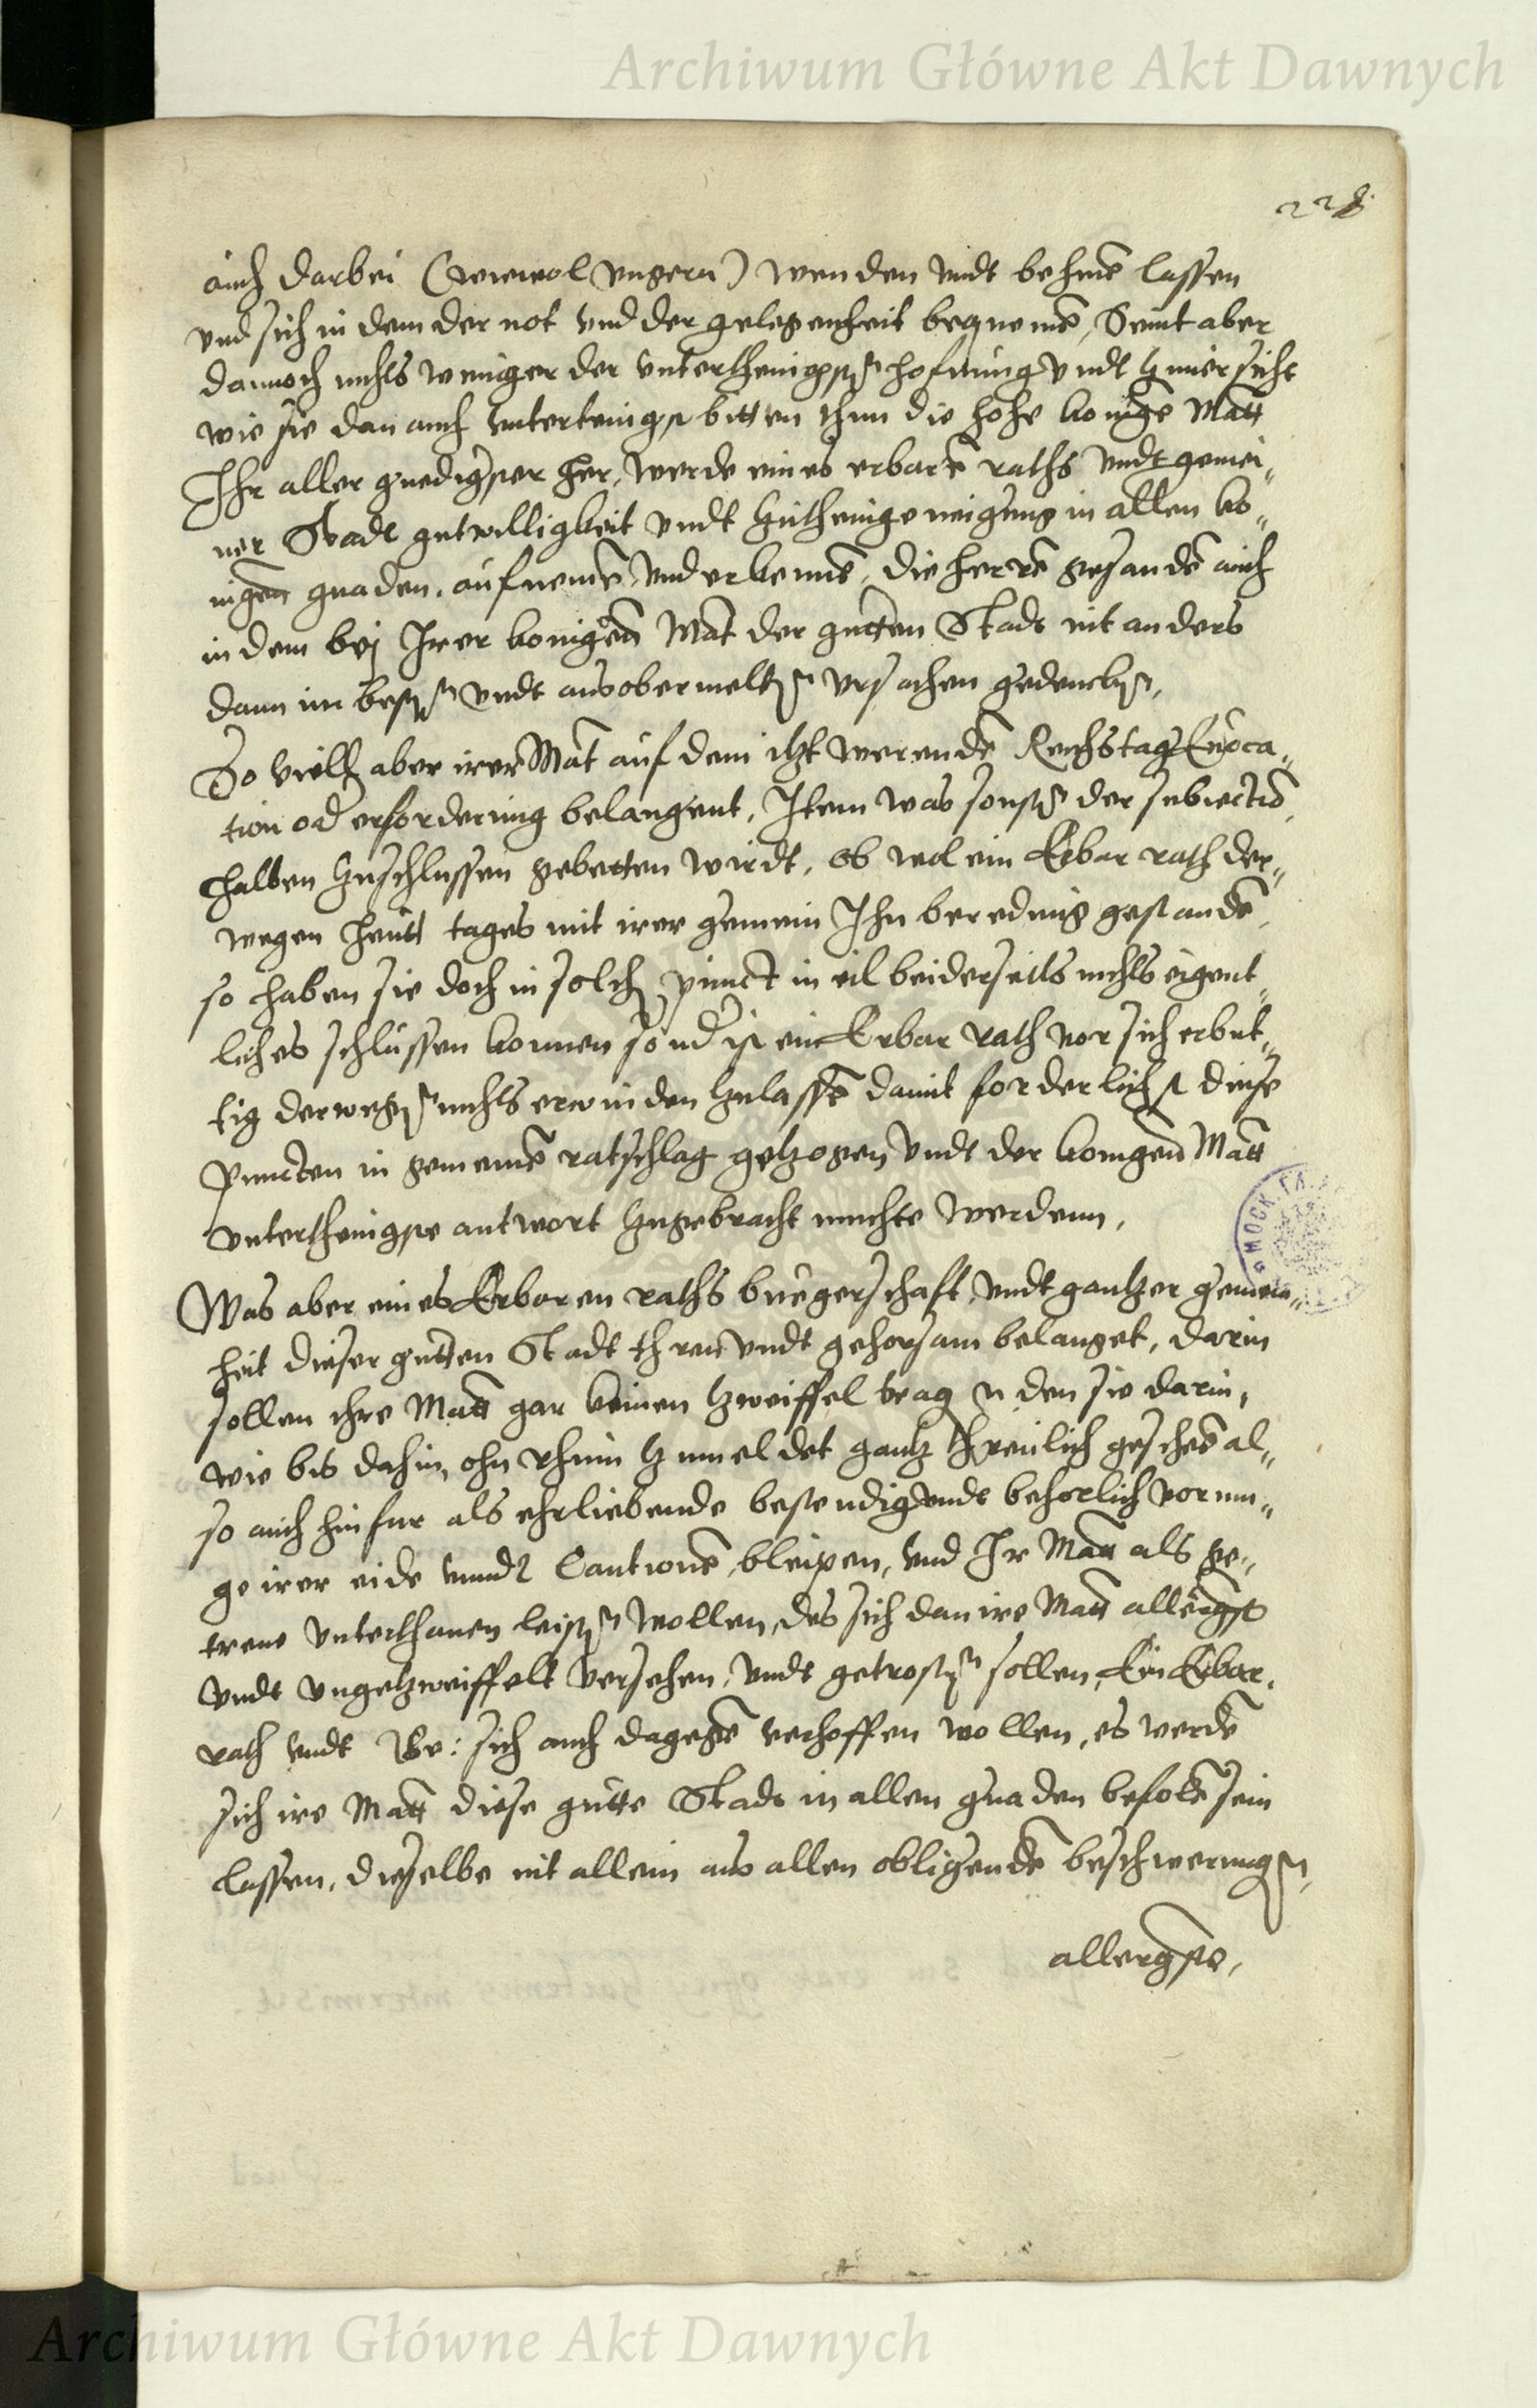 Archiwum Główne Akt Dawnych
228.
auch darbei (wiewol ungern) wenden undt behmē lassen
und sich in dem der not und der gelegenheit bequemē, Seint aber
dannoch nichts weniger der unterthenigsten hofnung undt zuversicht
wie sie dan auch untertenigst bitten thun die hohe konige Matt
Ihr aller gnedigster her, werde eines erbarē raths undt gemei„
ner Stadt gutwilligkeit undt zutheinge neigung in allen ko„
nigen gnaden, aufnemē und erkennē, die herrē gesandē auch
in dem bej Irer konigen Mat der gutten Stadt nit anders
dann im besten undt aus obermelten ursachen gedencken,
So vielh aber irer Mat auf dem itzt werendē Reichstag Euoca„
tion od erforderung belangent, Item was sonsten der subiectiō
halben zuschlussen gebetten wirdt, ob wol ein Erbar rath der„
wegen heutt tages mit irer gemein Ihn beredung gestandē,
so haben sie doch in solch punct in eil beiderseits nichts eigent„
liches schlussen konnen sond ist ein Erbar rath vor sich erbut„
tig derwegen nichts erwinden zulassē damit forderlichst diese
Puncten in gemeinē ratschlag getzogen undt der konigen Matt
unterthenigste antwort zugebracht muchte werdenn,
Was aber eines Erbaren raths burgerschaft, undt gantzer gemein„
heit dieser gutten Stadt threu undt gehorsam belanget, darin
sollen ihre Matt gar keinen zweiffel tragn den sie darin,
wie bis dahin, ohn rhum zumeldet gantz threulich geschehē al„
so auch hinfur als ehrliebende bestendig undt behorlich vermu„
ge irer eide unndt Cautionē, bleiben, und Ir Matt als ge„
treue unterthanen leisten wollen, des sich dan ire Matt allergst
undt ungetzweiffelt versehen, undt getrosten sollen, Ein Erbar.
rath undt Br: sich auch dagegē verhoffen wollen, es werdē
sich ire Matt diese gutte Stadt in allen gnaden befolē sein
lassen, dieselbe nit allein aus allen obligendē beschwerungen,
allergste,
Archiwum Główne Akt Dawnych